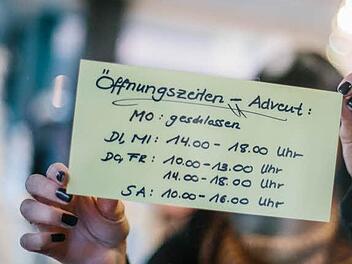 Öffnungszeiten – Advent:
MO: geschlossen
DI, MI: 14.00 - 18.00 Uhr
DO, FR: 10.00 - 13.00 Uhr
14.00 - 18.00 Uhr
SA: 10.00 - 16.00 Uhr